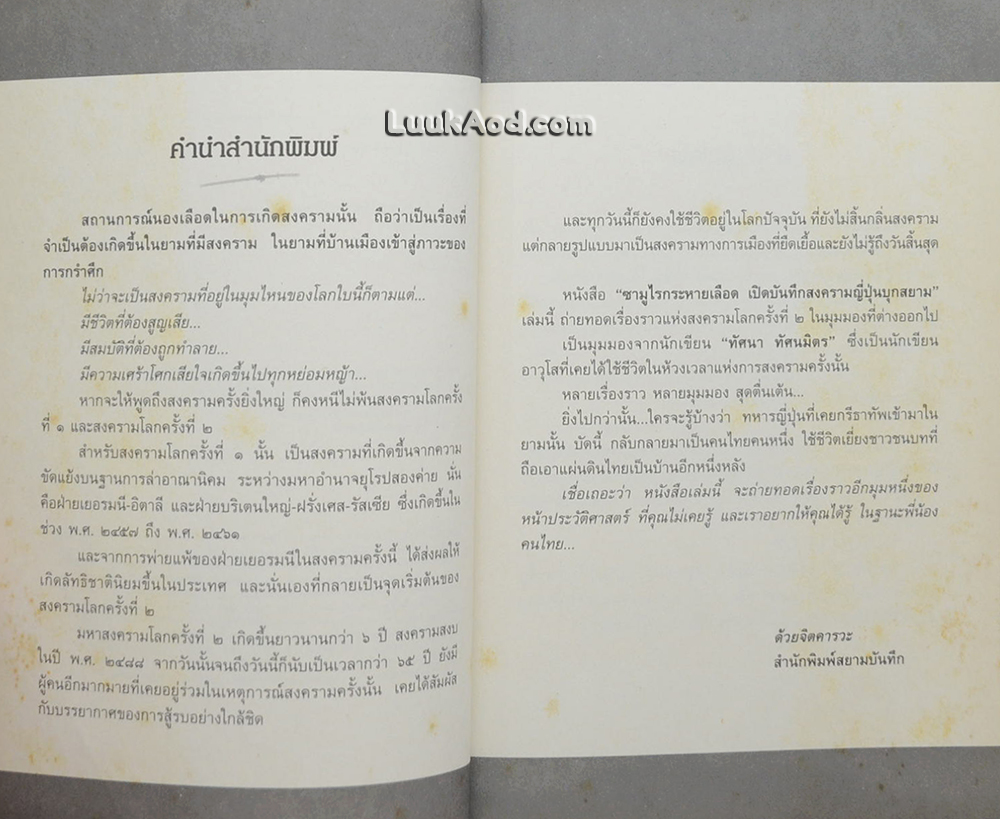 LuukAod.com
คำนำสำนักพิมพ์
สถานการณ์นองเลือดในการเกิดสงครามนั้น ถือว่าเป็นเรื่องที่
จำเป็นต้องเกิดขึ้นในยามที่มีสงคราม ในยามที่บ้านเมืองเข้าสู่ภาวะของ
การกรำศึก
ไม่ว่าจะเป็นสงครามที่อยู่ในมุมไหนของโลกใบนี้ก็ตามแต่...
มีชีวิตที่ต้องสูญเสีย...
มีสมบัติที่ต้องถูกทำลาย...
มีความเศร้าโศกเสียใจเกิดขึ้นไปทุกหย่อมหญ้า...
หากจะให้พูดถึงสงครามครั้งยิ่งใหญ่ ก็คงหนีไม่พ้นสงครามโลกครั้ง
ที่ ๑ และสงครามโลกครั้งที่ ๒
สำหรับสงครามโลกครั้งที่ ๑ นั้น เป็นสงครามที่เกิดขึ้นจากความ
ขัดแย้งบนฐานการล่าอาณานิคม ระหว่างมหาอำนาจยุโรปสองค่าย นั่น
คือฝ่ายเยอรมนี-อิตาลี และฝ่ายบริเตนใหญ่-ฝรั่งเศส-รัสเซีย ซึ่งเกิดขึ้นใน
ช่วง พ.ศ. ๒๔๕๗ ถึง พ.ศ. ๒๔๖๑
และจากการพ่ายแพ้ของฝ่ายเยอรมนีในสงครามครั้งนี้ ได้ส่งผลให้
เกิดลัทธิชาตินิยมขึ้นในประเทศ และนั่นเองที่กลายเป็นจุดเริ่มต้นของ
สงครามโลกครั้งที่ ๒
มหาสงครามโลกครั้งที่ ๒ เกิดขึ้นยาวนานกว่า ๖ ปี สงครามสงบ
ในปี พ.ศ. ๒๔๘๘ จากวันนั้นจนถึงวันนี้ก็นับเป็นเวลากว่า ๖๕ ปี ยังมี
ผู้คนอีกมากมายที่เคยอยู่ร่วมในเหตุการณ์สงครามครั้งนั้น เคยได้สัมผัส
กับบรรยากาศของการสู้รบอย่างใกล้ชิด
และทุกวันนี้ก็ยังคงใช้ชีวิตอยู่ในโลกปัจจุบัน ที่ยังไม่สิ้นกลิ่นสงคราม
แต่กลายรูปแบบมาเป็นสงครามทางการเมืองที่ยืดเยื้อและยังไม่รู้ถึงวันสิ้นสุด
หนังสือ “ซามูไรกระหายเลือด เปิดบันทึกสงครามญี่ปุ่นบุกสยาม”
เล่มนี้ ถ่ายทอดเรื่องราวแห่งสงครามโลกครั้งที่ ๒ ในมุมมองที่ต่างออกไป
เป็นมุมมองจากนักเขียน “ทัศนา ทัศนมิตร” ซึ่งเป็นนักเขียน
อาวุโสที่เคยได้ใช้ชีวิตในห้วงเวลาแห่งการสงครามครั้งนั้น
หลายเรื่องราว หลายมุมมอง สุดตื่นเต้น...
ยิ่งไปกว่านั้น...ใครจะรู้บ้างว่า ทหารญี่ปุ่นที่เคยกรีธาทัพเข้ามาใน
ยามนั้น บัดนี้ กลับกลายมาเป็นคนไทยคนหนึ่ง ใช้ชีวิตเยี่ยงชาวชนบทที่
ถือเอาแผ่นดินไทยเป็นบ้านอีกหนึ่งหลัง
เชื่อเถอะว่า หนังสือเล่มนี้ จะถ่ายทอดเรื่องราวอีกมุมหนึ่งของ
หน้าประวัติศาสตร์ ที่คุณไม่เคยรู้ และเราอยากให้คุณได้รู้ ในฐานะพี่น้อง
คนไทย...
ด้วยจิตคารวะ
สำนักพิมพ์สยามบันทึก